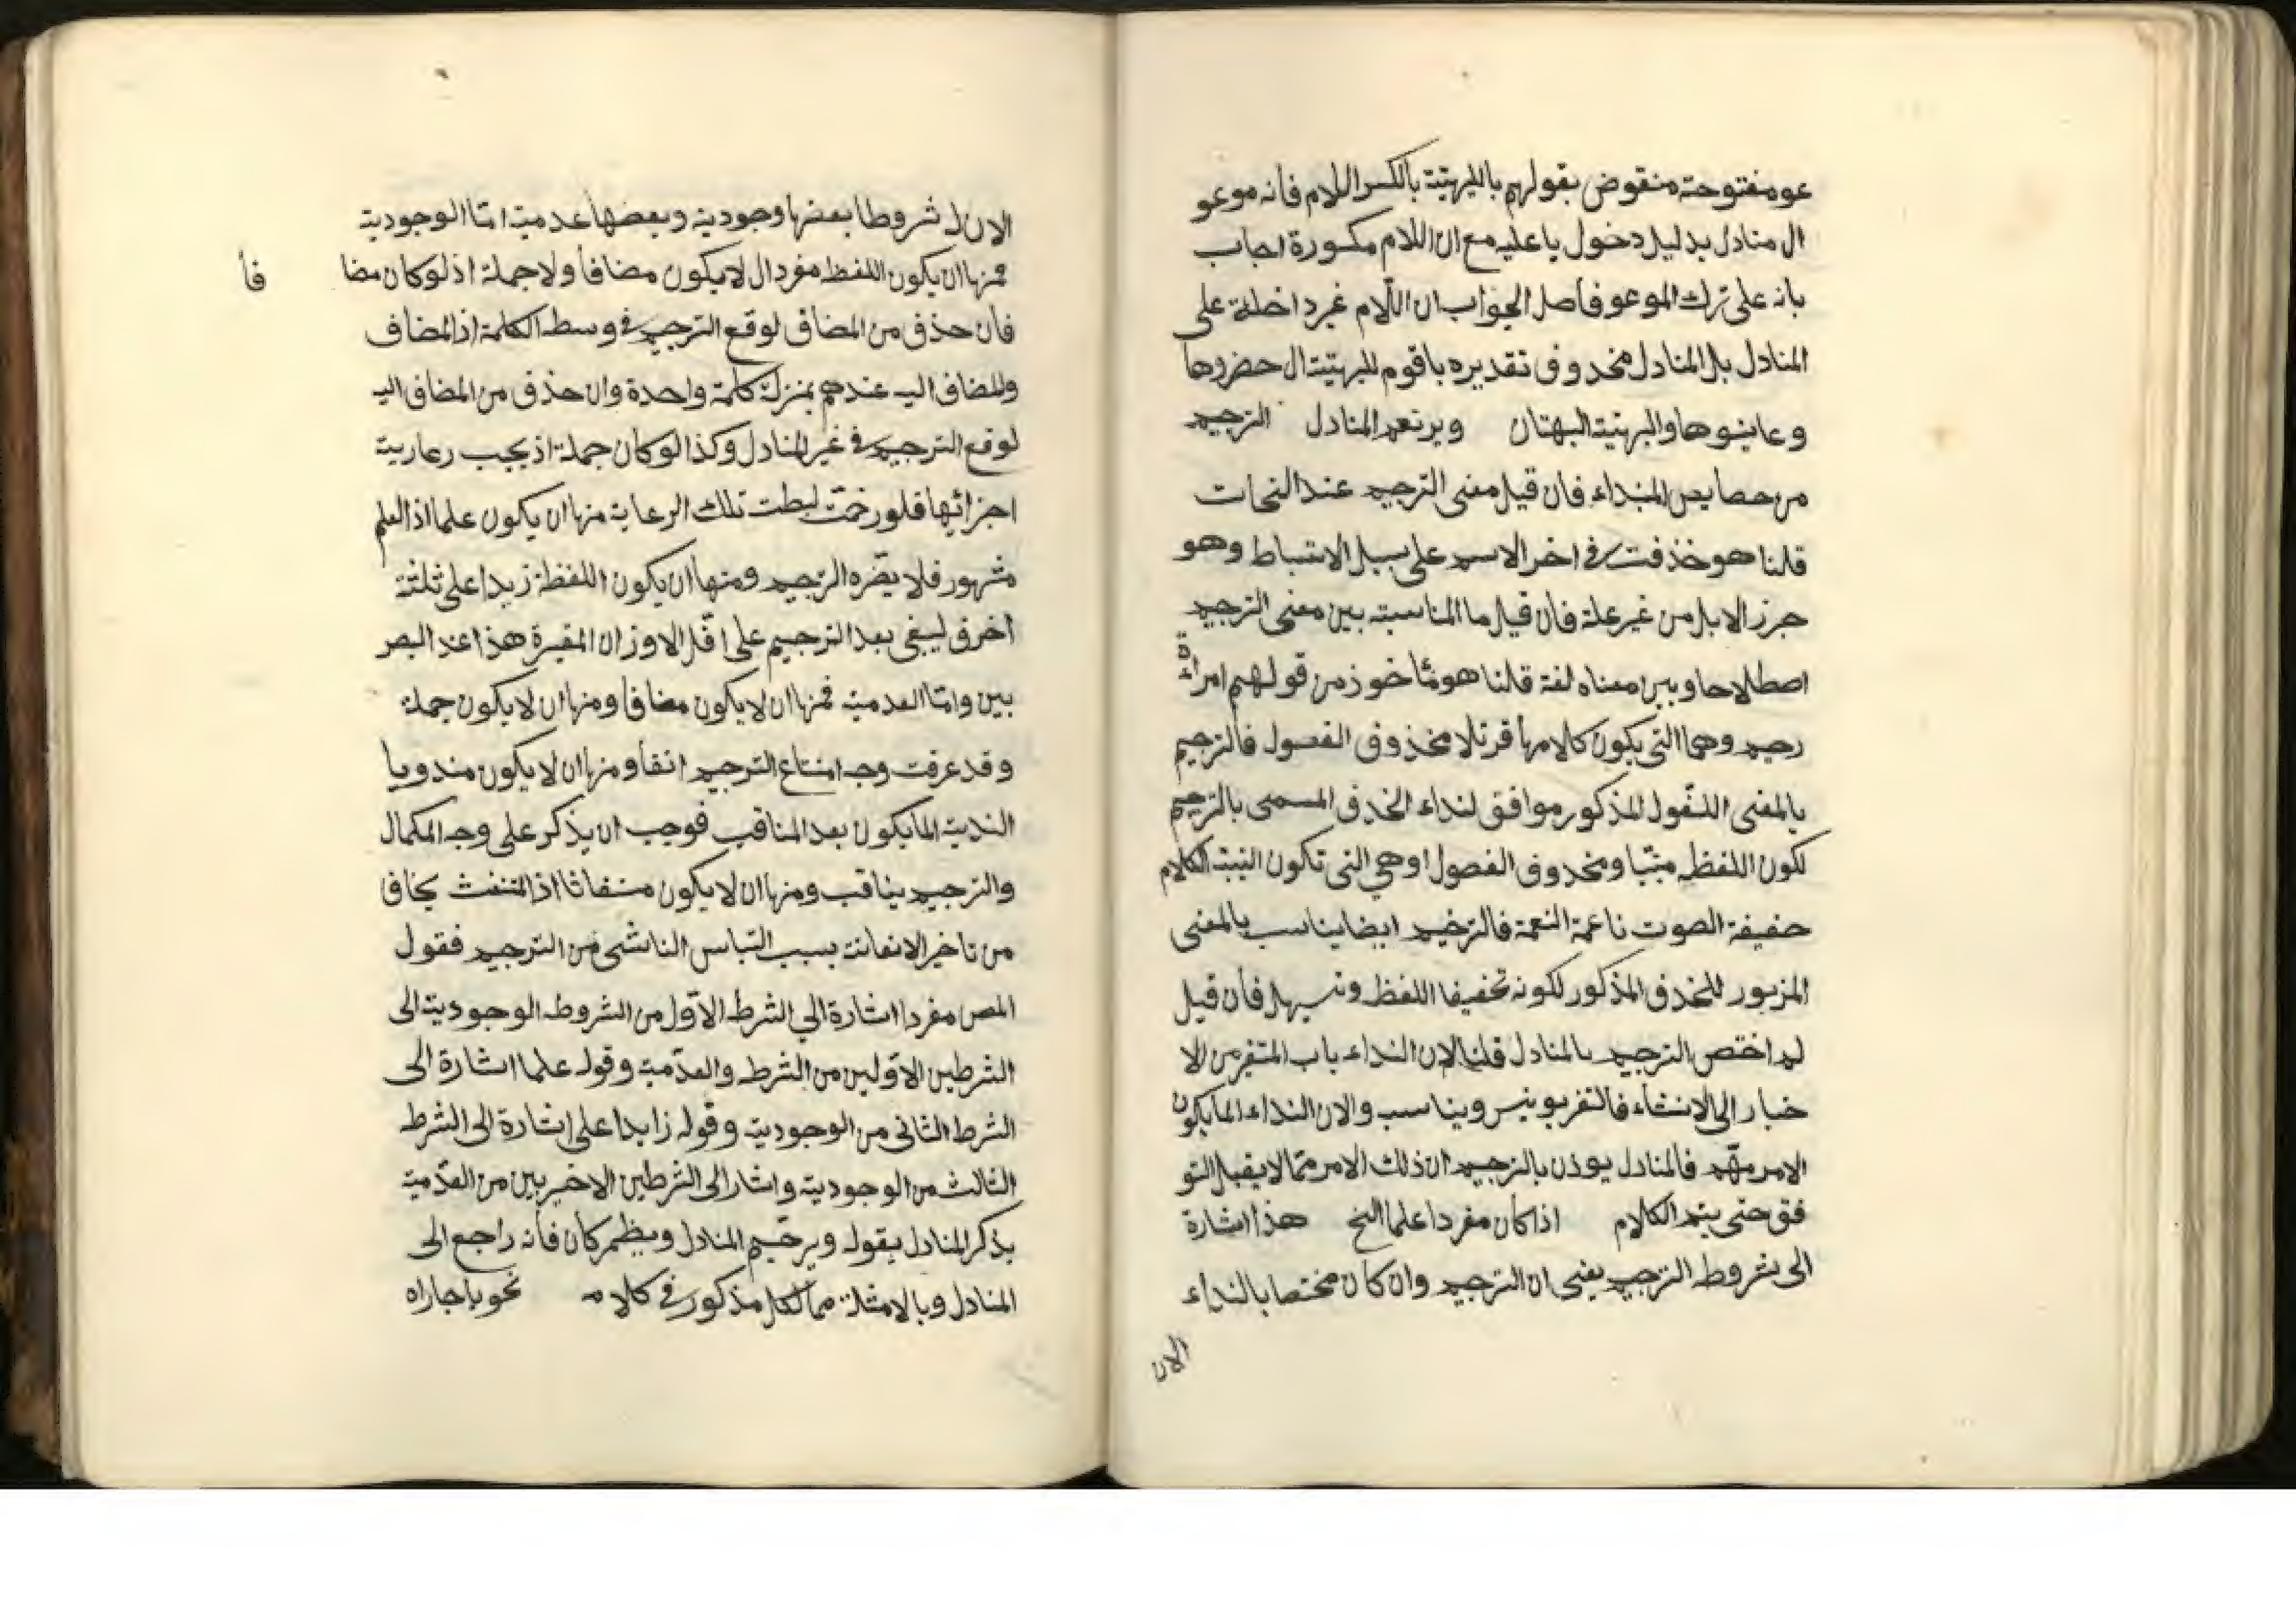 عو مفتوحة منقوض بقولهم باللبهيتة بالكسر اللام فانه موعو
ال منادل بدليل دخول يا عليه مع ان اللام مكسورة اجاب
بانه على ترك الموعو فاصل الجواب ان اللام غير داخلة على
المنادل بل المنادل محذوف تقديره يا قوم للبهيتة ال حضروها
وعاينوها والبهيتة البهتان ويرتعم المنادل الترجيم
من حصايص المنداء فان قيل معنى الترجيم عند النحات
قلنا هو خذفت في اخر الاسم على سبيل الاستباط وهو
جرز الابل من غير علة فان قيل ما المناسبته بين معنى الترجيم
اصطلاحا وبين معناه لغة قلنا هو مأخوذ من قولهم امراءة
رجيم وهي التي يكون كلامها قرتلا مخذوف الفصول فالترجيم
بالمعنى المنقول المذكور موافق لنداء الخذف المسمى بالترجيم
لكون اللفظ مبتبا ومخذوف الفصول اوهي التي تكون الينبة الكلام
حفيفة الصوت ناعمة النعمة فالترخيم ايضا يناسب بالمعنى
المزبور للخذف المذكور لكونه تخفيفا اللفظ وتسهيل فان قيل
لم اختص الترجيم بالمنادل قلنا لان النداء باب المتغير من الا
خبار الى الانشاء فالتغر يونس ويناسب ولان النداء لما يكون
الامر مهم فالمنادل يوذن بالترجيم ان ذلك الامر مما لا يقبل التو
فق حتى يتم الكلام اذا كان مفردا علما الخ هذا اشارة
الى شروط الترجيم يعنى ان الترجيم وان كان مختصا بالنداء
الان
الان ل شروطا بعضها وجودية وبعضها عدمية اما الوجودية
فمنها ان يكون اللفظ مفردا ل لا يكون مضافا ولا جملة اذ لو كان مضا
فا
فان حذف من المضاف لوقع الترجيم في وسط الكلمة اذ المضاف
والمضاف اليه عندهم بمنزلة كلمة واحدة وان حذف من المضاف اليه
لوقع الترجيم في غير المنادل وكذا لو كان جملة اذ يجب رعارية
اجزائها فلو رخمت لبطت تلك الرعاية منها ان يكون علما اذ العلم
مشهور فلا يضره الترجيم ومنها ان يكون اللفظة زيدا على ثلثة
اخرف ليبغى بعد الترجيم على اقل الاوزان المغيرة هذا عند البصر
بين واما العدمية فمنها ان لا يكون مضافا ومنها ان لا يكون جملة
وقد عرفت وجه امتناع الترجيم انفا ومنها ان لا يكون مندوبا
الندبة لما يكون بعد المناقب فوجب ان يذكر على وجه المكمال
والترجيم يناقب ومنها ان لا يكون منفاثا اذ المتنفث يخاف
من تاخير الانفاثة بسبب التباس الناشى من الترجيم فقول
المص مفردا اشارة الي الشرط الاول من الشروط الوجودية الى
الشرطين الاولين من الشرط والعدمية وقوله علما اشارة الى
الشرط الثانى من الوجودية وقوله زايدا على اشارة الى الشرط
الثالث من الوجودية واشار الى الشرطين الاخيريين من العدمية
بذكر المنادل بقوله ويرخيم المنادل ويظهر كان فانه راجع الى
المنادل وبالامثلة مما لكل مذكور في كلامه نحو يا جاراه